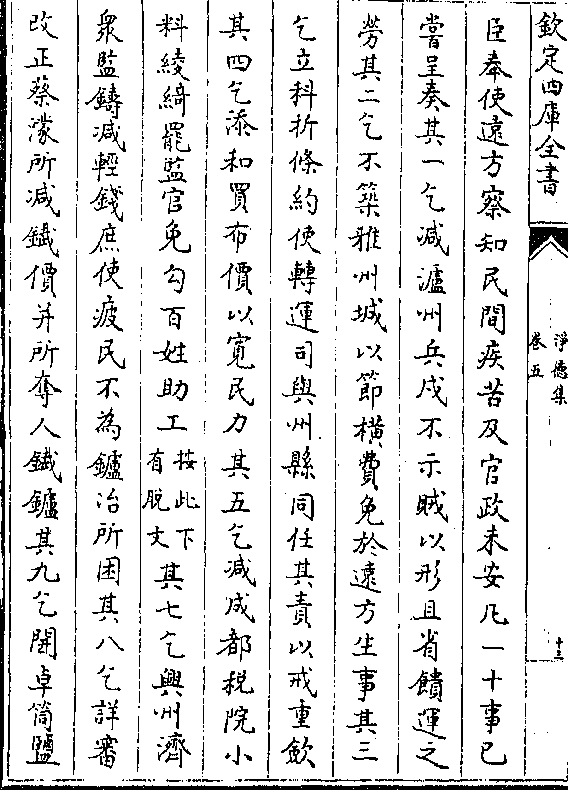 欽定四庫全書
淨德集
卷五
十三
臣奉使遠方察知民間疾苦及官政未安凡一十事已
嘗呈奏其一乞減瀘州兵戍不示賊以形且省饋運之
勞其二乞不築雅州城以節橫費免於遠方生事其三
乞立科折條約使轉運司與州縣同任其責以戒重歛
其四乞添和買布價以寛民力其五乞减成都税院小
料綾綺罷監官免勾百姓助工按此下有脱文其七乞興州濟
衆監鑄减輕錢庶使疲民不為鑪冶所困其八乞詳審
改正蔡濛所减鐵價并所奪人鐵鑪其九乞開卓筒鹽